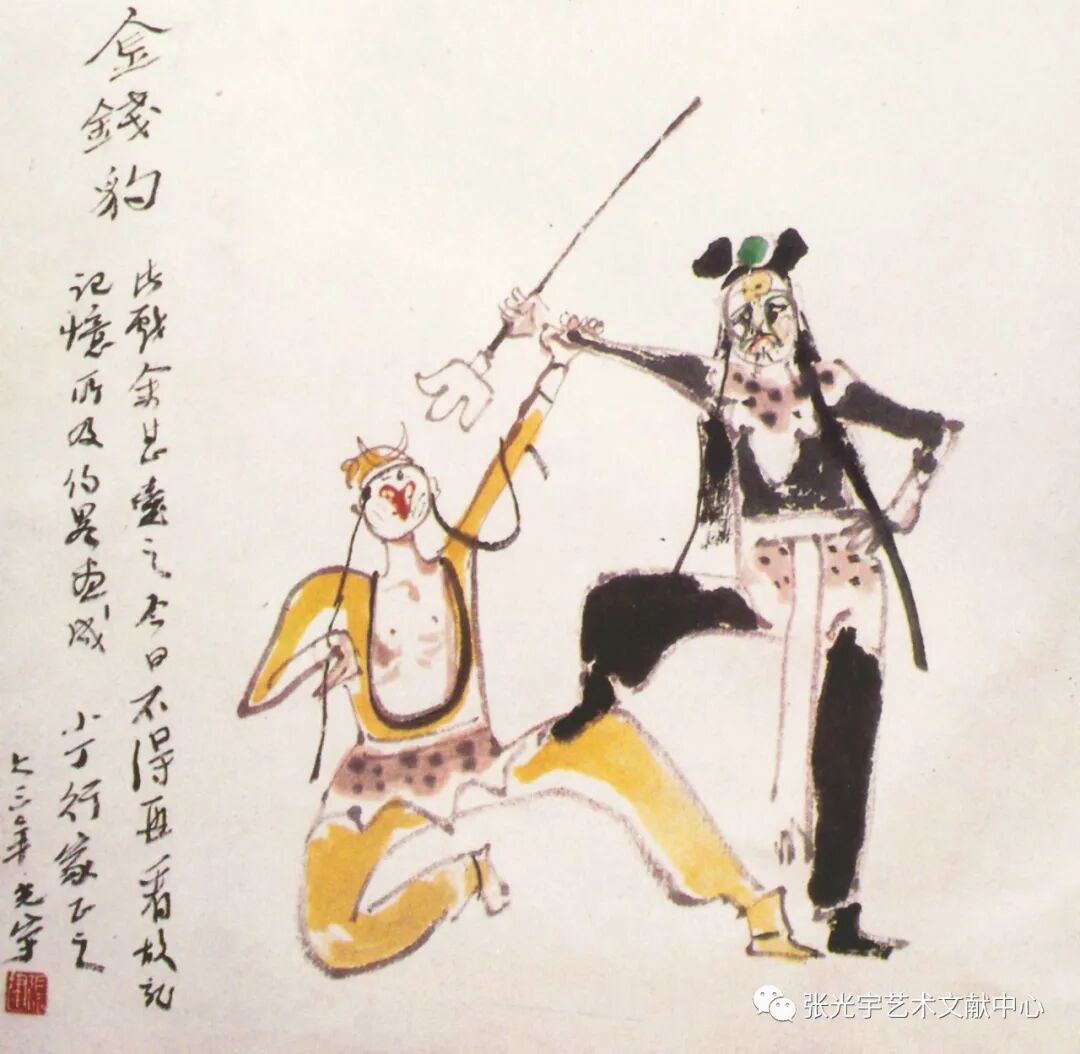 金錢豹
此戲余甚愛之今日不得再看故
記憶所及約畧画成 小丁行家正之
年 光宇
张光宇艺术文献中心